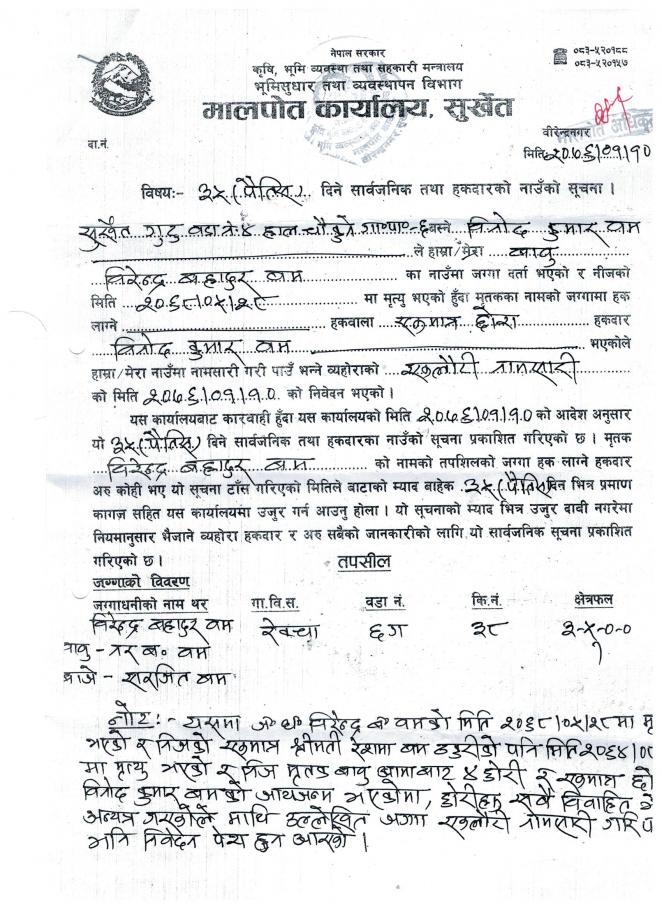 नेपाल सरकार
कृषि, भूमि व्यवस्था तथा सहकारी मन्त्रालय
भूमिसुधार तथा व्यवस्थापन विभाग
मालपोत कार्यालय, सुर्खेत
☎ ०८३-५२०१८८
☎ ०८३-५२०१५७
वीरेन्द्रनगर
दा.नं.
मितिः २०७६।०१।१०
विषयः- ३५ (पैंतिस) दिने सार्वजनिक तथा हकदारको नाउँको सूचना ।
सुर्खेत गुटु वडा नं. ४ हाल चौकुने गा०पा०-६ बस्ने विनोद कुमार बम
ले हाम्रा/मेरा बाबु
विरेन्द्र बहादुर बम का नाउँमा जग्गा दर्ता भएको र नीजको
मिति २०६८।०५।२८ मा मृत्यु भएको हुँदा मृतकका नामको जग्गामा हक
लाग्ने हकवाला एकमात्र छोरा हकदार
विनोद कुमार बम भएकोले
हाम्रा/मेरा नाउँमा नामसारी गरी पाउँ भन्ने व्यहोराको एकलौटी नामसारी
को मिति २०७६।०१।१०. को निवेदन भएको ।
यस कार्यालयबाट कारवाही हुँदा यस कार्यालयको मिति २०७६।०१।१० को आदेश अनुसार
यो ३५ (पैंतिस) दिने सार्वजनिक तथा हकदारका नाउँको सूचना प्रकाशित गरिएको छ । मृतक
विरेन्द्र बहादुर बम को नामको तपशिलको जग्गा हक लाग्ने हकदार
अरु कोही भए यो सूचना टाँस गरिएको मितिले बाटाको म्याद बाहेक ३५ (पैंतिस) दिन भित्र प्रमाण
कागज सहित यस कार्यालयमा उजुर गर्न आउनु होला । यो सूचनाको म्याद भित्र उजुर दावी नगरेमा
नियमानुसार भैजाने व्यहोरा हकदार र अरु सबैको जानकारीको लागि यो सार्वजनिक सूचना प्रकाशित
गरिएको छ ।
तपसील
जग्गाको विवरण
जग्गाधनीको नाम थर गा.वि.स. वडा नं. कि.नं. क्षेत्रफल
विरेन्द्र बहादुर बम ६ग ३८ ३-५-०-०
बाबु - नर ब० बम
बाजे - सरजित बम
नोट :- यसमा ज०ध० विरेन्द्र ब० बमको मिति २०६८।०५।२८ मा मृ
भएको र निजको एकमात्र श्रीमती रेशमा बम ठकुरीको पनि मिति २०६४।०
मा मृत्यु भएको र निज मृतक बाबु आमाबाट ४ छोरी र एकमात्र छो
विनोद कुमार बमको जायजन्म भएकोमा, छोरीहरु सबै विवाहित
अन्यत्र गएकोले माथि उल्लेखित जग्गा एकलौटी नामसारी गरि प
भनि निवेदन पेश हुन आएको ।